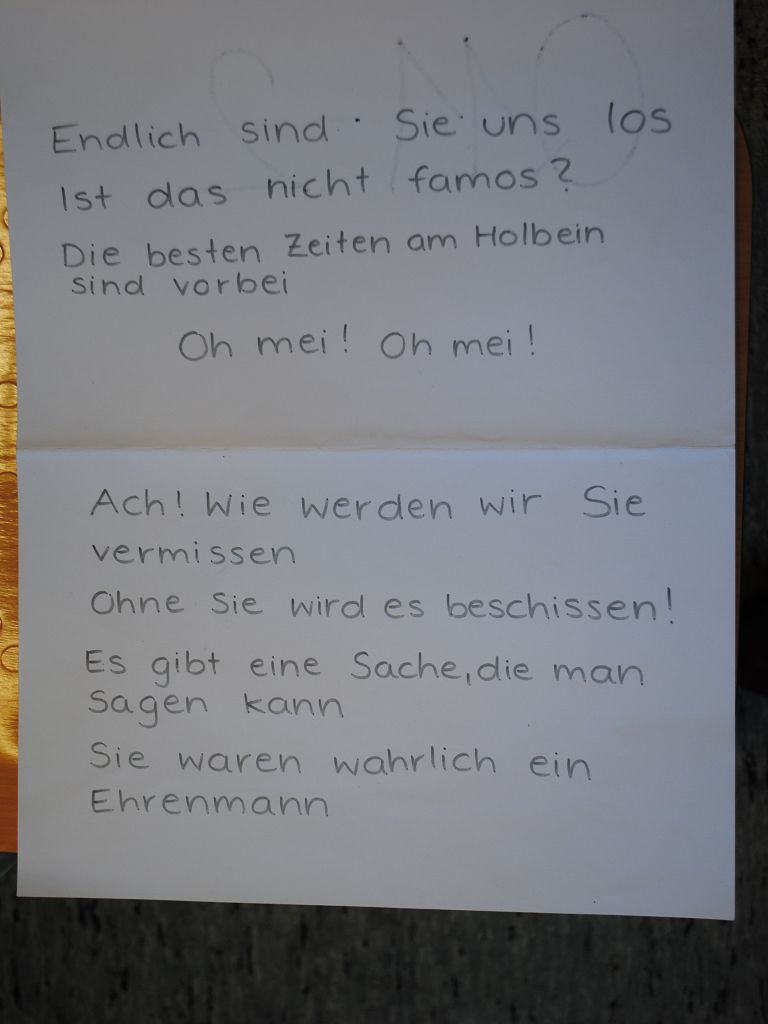 Endlich sind Sie uns los
Ist das nicht famos?
Die besten Zeiten am Holbein
sind vorbei
Oh mei! Oh mei!
Ach! Wie werden wir Sie
vermissen
Ohne Sie wird es beschissen!
Es gibt eine Sache, die man
sagen kann
Sie waren wahrlich ein
Ehrenmann